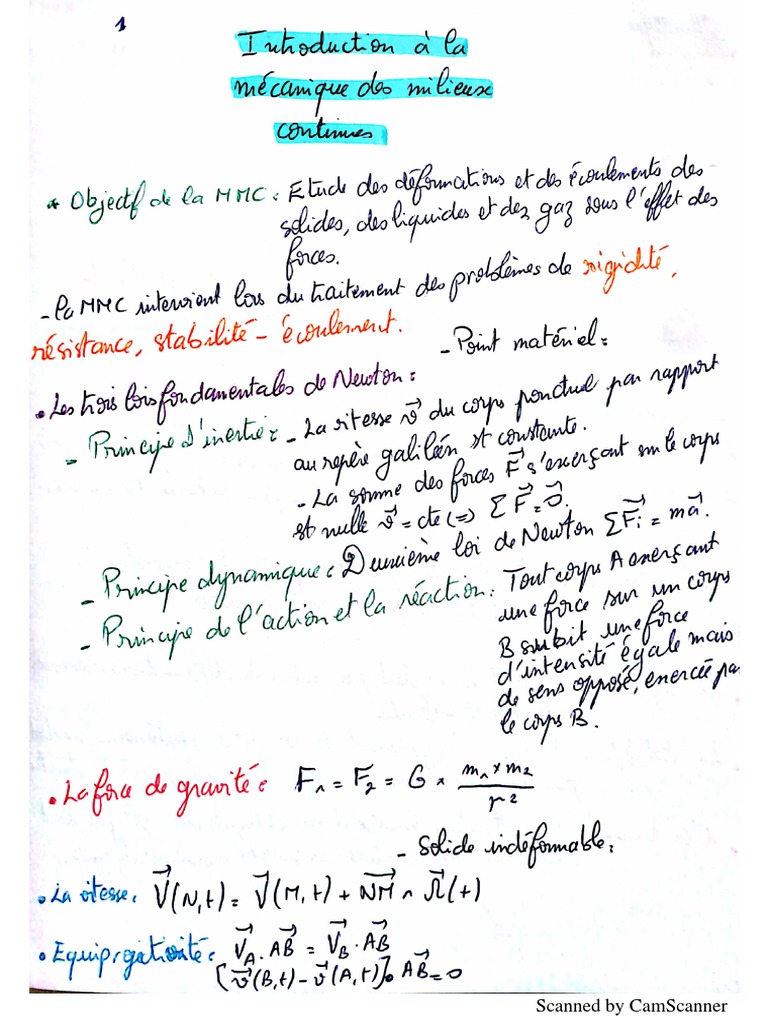 1
Introduction à la
mécanique des milieux
continues
* Objectif de la MMC : Etude des déformations et des écoulements des
solides, des liquides et dez gaz sous l'effet des
forces.
- la MMC intervient lors du traitement des problèmes de rigidité,
résistance, stabilité - écoulement.
- Point matériel :
• Les trois lois fondamentales de Newton :
- Principe d'inertie : - La vitesse v⃗ du corps ponctuel par rapport
au repère galiléen st constante.
- La somme des forces F⃗ s'exerçant sur le corps
st nulle v⃗ = cte (=) ΣF⃗ = 0⃗.
- Principe dynamique : Deuxième loi de Newton ΣF⃗i = ma⃗.
- Principe de l'action et la réaction : Tout corps A exerçant
une force sur un corps
B subit une force
d'intensité égale mais
de sens opposé, exercée pa
le corps B.
• La force de gravité : F₁ = F₂ = G × (m₁ × m₂) / r²
- Solide indéformable :
• La vitesse : V⃗(N,t) = V⃗(M,t) + NM⃗ ∧ Ω⃗(t)
• Equiprojectivité : V⃗A . AB⃗ = V⃗B . AB⃗
[v⃗(B,t) - v⃗(A,t)] • AB⃗ = 0
Scanned by CamScanner